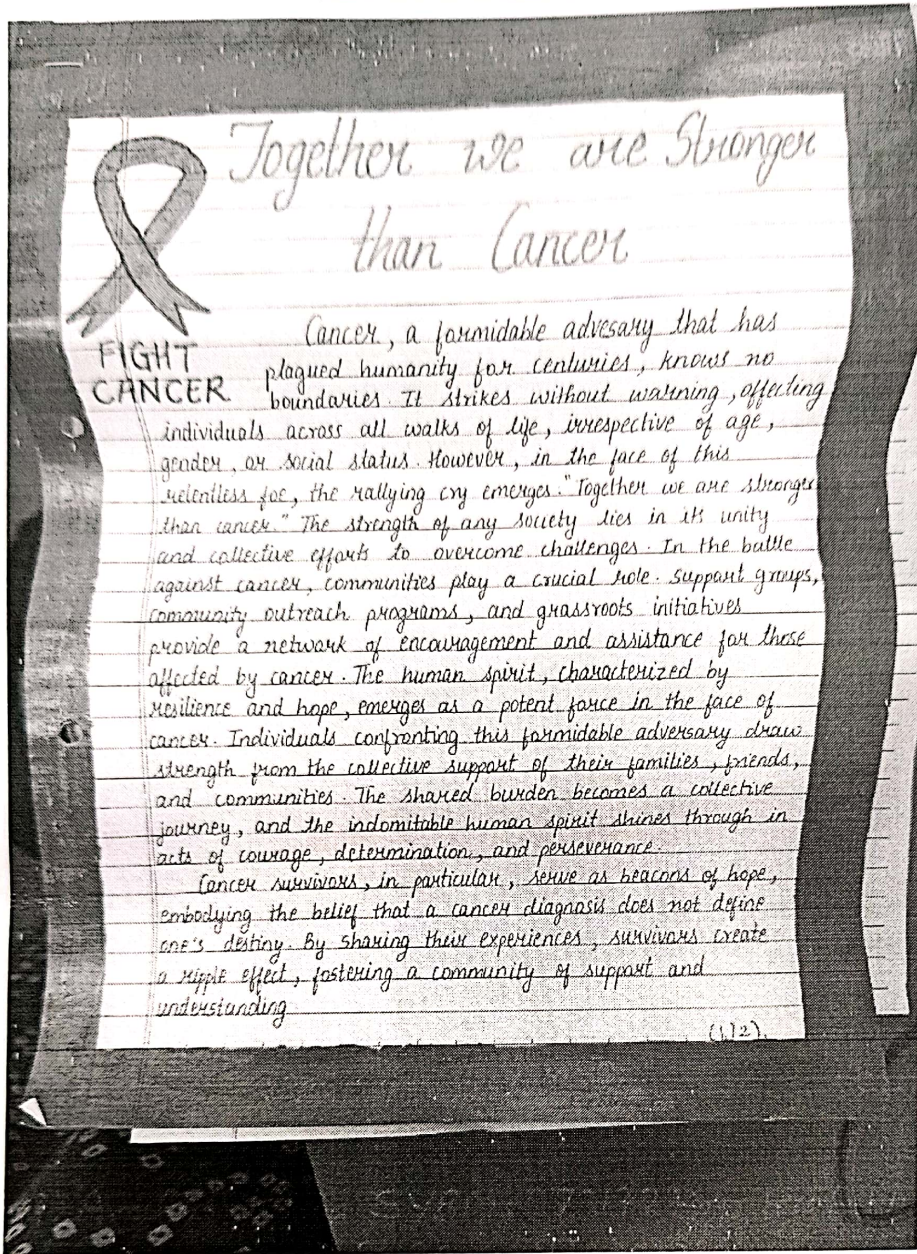 Together we are Stronger
than Cancer
FIGHT
CANCER
Cancer, a formidable advesary that has
plagued humanity for centuries, knows no
boundaries. It strikes without warning, affecting
individuals across all walks of life, irrespective of age,
gender, or social status. However, in the face of this
relentless foe, the rallying cry emerges. "Together we are stronger
than cancer." The strength of any society lies in its unity
and collective efforts to overcome challenges. In the battle
against cancer, communities play a crucial role. support groups,
community outreach programs, and grassroots initiatives
provide a network of encouragement and assistance for those
affected by cancer. The human spirit, characterized by
resilience and hope, emerges as a potent force in the face of
cancer. Individuals confronting this formidable adversary draw
strength from the collective support of their families, friends,
and communities. The shared burden becomes a collective
journey, and the indomitable human spirit shines through in
acts of courage, determination, and perseverance.
Cancer survivors, in particular, serve as beacons of hope,
embodying the belief that a cancer diagnosis does not define
one's destiny. By sharing their experiences, survivors create
a ripple effect, fostering a community of support and
understanding
(1/2)